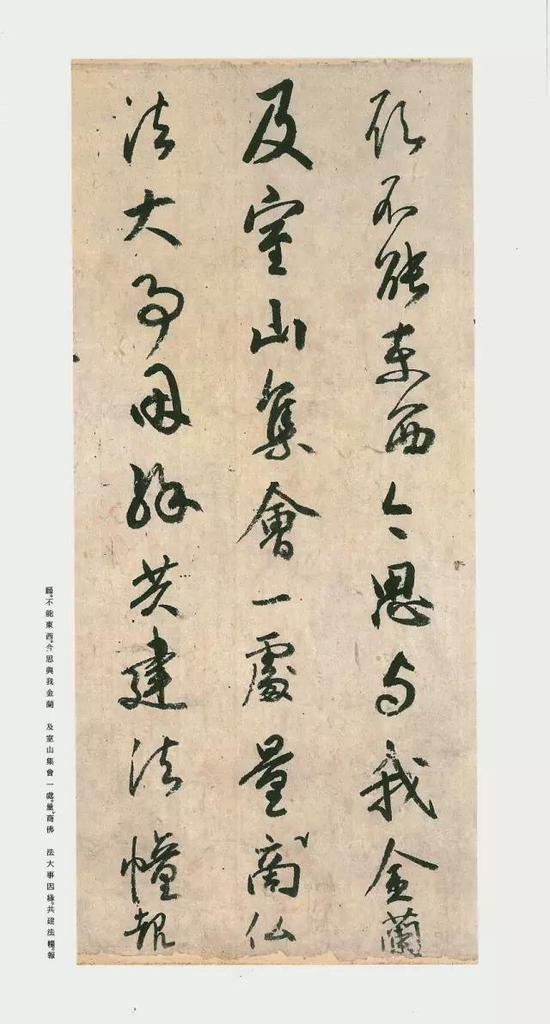 願不能東西今思与我金蘭
及室山集會一處量商仏
法大事因縁共建法幢報
願。不能東西。今思與我金蘭　及室山集會一處。量商佛　法大事因緣。共建法幢。報